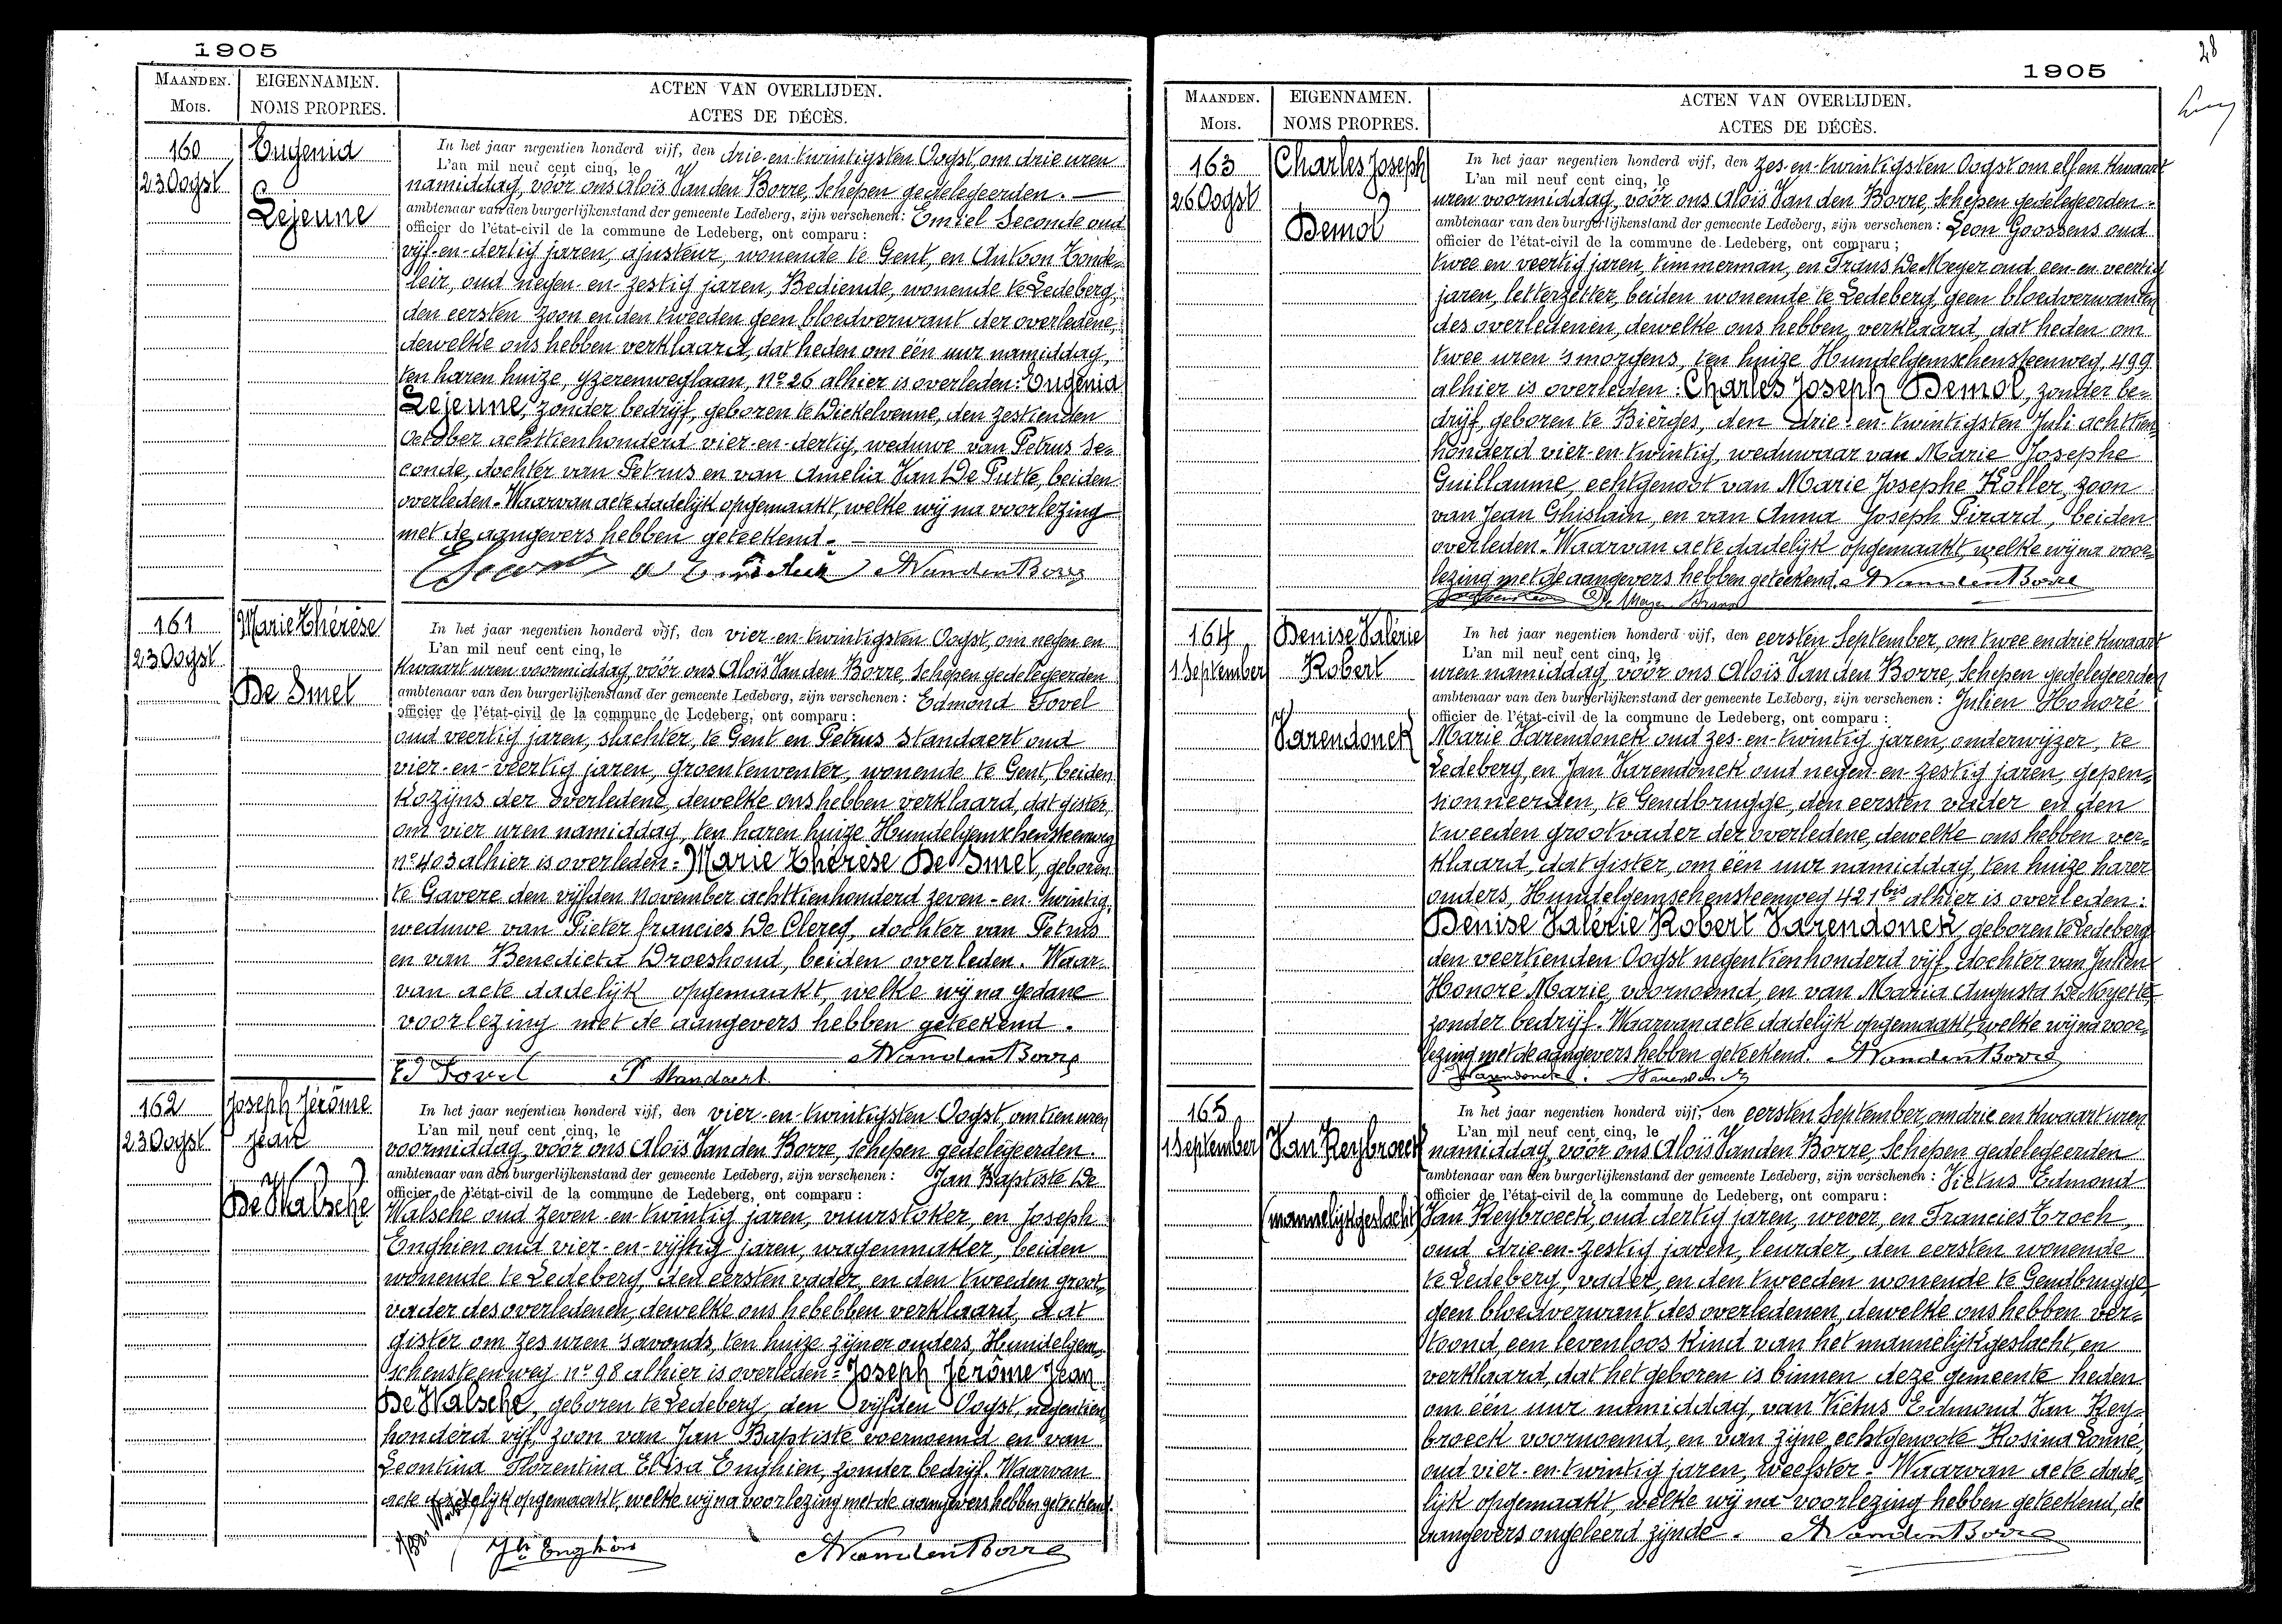 1905
MAANDEN. EIGENNAMEN. ACTEN VAN OVERLIJDEN.
MOIS. NOMS PROPRES. ACTES DE DÉCÈS.
160
23 Oogst
Eugenia
Lejeune
In het jaar negentien honderd vijf, den drie-en-twintigsten Oogst, om drie uren
L'an mil neuf cent cinq, le
namiddag, vóór ons Aloïs Van den Borre, Schepen gedelegeerden. —
ambtenaar van den burgerlijkenstand der gemeente Ledeberg, zijn verschenen: Emiel Seconde oud
officier de l'état-civil de la commune de Ledeberg, ont comparu :
vijf-en-dertig jaren, ajusteur, wonende te Gent, en Antoon Tonde-
leir, oud negen-en-zestig jaren, Bediende, wonende te Ledeberg,
den eersten zoon en den tweeden geen bloedverwant der overledene,
dewelke ons hebben verklaard, dat heden om één uur namiddag,
ten haren huize, Yzerenweglaan, no 26 alhier is overleden: Eugenia
Lejeune, zonder bedrijf, geboren te Dickelvenne, den zestienden
October achttienhonderd vier-en-dertig, weduwe van Petrus Se-
conde, dochter van Petrus en van Amelia Van De Putte, beiden
overleden. Waarvan acte dadelijk opgemaakt, welke wij na voorlezing
met de aangevers hebben geteekend.
AVandenBorre
161
23 Oogst
Marie Thérèse
De Smet
In het jaar negentien honderd vijf, den vier-en-twintigsten Oogst, om negen en
L'an mil neuf cent cinq, le
kwaart uren voormiddag, vóór ons Aloïs Van den Borre, Schepen gedelegeerden
ambtenaar van den burgerlijkenstand der gemeente Ledeberg, zijn verschenen: Edmond Fovel
officier de l'état-civil de la commune de Ledeberg, ont comparu :
oud veertig jaren, slachter, te Gent en Petrus Standaert oud
vier-en-veertig jaren, groentenventer, wonende te Gent, beiden
Kozijns der overledene, dewelke ons hebben verklaard, dat gister,
om vier uren namiddag, ten haren huize Hundelgemschensteenweg
no 403 alhier is overleden: Marie Thérèse De Smet, geboren
te Gavere den vijfden November achttienhonderd zeven-en-twintig,
weduwe van Pieter francies De Clercq, dochter van Petrus
en van Benedicta Droeshoud, beiden overleden. Waar-
van acte dadelijk opgemaakt, welke wij na gedane
voorlezing met de aangevers hebben geteekend.
AVandenBorre
Ed Fovel P Standaert
162
23 Oogst
Joseph Jérôme
Jean
De Walsche
In het jaar negentien honderd vijf, den vier-en-twintigsten Oogst, om tien uren
L'an mil neuf cent cinq, le
voormiddag, vóór ons Aloïs Van den Borre, Schepen gedelegeerden.
ambtenaar van den burgerlijkenstand der gemeente Ledeberg, zijn verschenen: Jan Baptiste De
officier de l'état-civil de la commune de Ledeberg, ont comparu :
Walsche oud zeven-en-twintig jaren, vuurstoker, en Joseph
Enghien oud vier-en-vijftig jaren, wagenmaker, beiden
wonende te Ledeberg, den eersten vader, en den tweeden groot-
vader des overledenen, dewelke ons hebebben verklaard, dat
gister om zes uren 's avonds, ten huize zijner ouders, Hundelgem-
schensteenweg no 98 alhier is overleden: Joseph Jérôme Jean
De Walsche, geboren te Ledeberg, den vijfden Oogst, negentien
honderd vijf, zoon van Jan Baptiste voornoemd en van
Leontina Florentina Elisa Enghien, zonder bedrijf. Waarvan
acte dadelijk opgemaakt, welke wij na voorlezing met de aangevers hebben geteekend.
Jh Enghien AVandenBorre
28
1905
MAANDEN. EIGENNAMEN. ACTEN VAN OVERLIJDEN.
MOIS. NOMS PROPRES. ACTES DE DÉCÈS.
163
26 Oogst
Charles Joseph
Demol
In het jaar negentien honderd vijf, den zes-en-twintigsten Oogst om elf en kwaart
L'an mil neuf cent cinq, le
uren voormiddag, vóór ons Aloïs Van den Borre, Schepen gedelegeerden.
ambtenaar van den burgerlijkenstand der gemeente Ledeberg, zijn verschenen: Leon Goossens oud
officier de l'état-civil de la commune de Ledeberg, ont comparu ;
twee en veertig jaren, timmerman, en Frans De Meyer oud een-en-veertig
jaren, letterzetter, beiden wonende te Ledeberg, geen bloedverwanten
des overledenen, dewelke ons hebben verklaard, dat heden om
twee uren 's morgens, ten huize Hundelgemschensteenweg, 499
alhier is overleden: Charles Joseph Demol, zonder be-
drijf, geboren te Bierges, den drie-en-twintigsten Juli achttien-
honderd vier-en-twintig, weduwaar van Marie Josephe
Guillaume, echtgenoot van Marie Josephe Koller, zoon
van Jean Ghislain, en van Anna Joseph Pirard, beiden
overleden. Waarvan acte dadelijk opgemaakt, welke wij na voor-
lezing met de aangevers hebben geteekend. AVandenBorre
De Meyer
164
1 September
Denise Valérie
Robert
Varendonck
In het jaar negentien honderd vijf, den eersten September, om twee en drie kwaart
L'an mil neuf cent cinq, le
uren namiddag, vóór ons Aloïs Van den Borre, Schepen gedelegeerden
ambtenaar van den burgerlijkenstand der gemeente Ledeberg, zijn verschenen: Julien Honoré
officier de l'état-civil de la commune de Ledeberg, ont comparu :
Marie Varendonck oud zes-en-twintig jaren, onderwijzer, te
Ledeberg, en Jan Varendonck oud negen-en-zestig jaren, gepen-
sionneerden, te Gendbrugge, den eersten vader en den
tweeden grootvader der overledene, dewelke ons hebben ver-
klaard, dat gister, om één uur namiddag, ten huize harer
ouders, Hundelgemschensteenweg 421bis alhier is overleden:
Denise Valérie Robert Varendonck, geboren te Ledeberg
den veertienden Oogst negentienhonderd vijf, dochter van Julien
Honoré Marie, voornoemd, en van Maria Augusta De Noyette,
zonder bedrijf. Waarvan acte dadelijk opgemaakt, welke wij na voor-
lezing met de aangevers hebben geteekend. AVandenBorre
Varendonck.
165
1 September
Van Reybroeck
(mannelijk geslacht)
In het jaar negentien honderd vijf, den eersten September, om drie en kwaart uren
L'an mil neuf cent cinq, le
namiddag, vóór ons Aloïs Van den Borre, Schepen gedelegeerden
ambtenaar van den burgerlijkenstand der gemeente Ledeberg, zijn verschenen: Victus Edmond
officier de l'état-civil de la commune de Ledeberg, ont comparu :
Van Reybroeck, oud dertig jaren, wever, en Francies Troch,
oud drie-en-zestig jaren, leurder, den eersten wonende
te Ledeberg, vader, en den tweeden wonende te Gendbrugge,
geen bloedverwant des overledenen, dewelke ons hebben ver-
toond, een levenloos kind van het mannelijk geslacht, en
verklaard, dat het geboren is binnen deze gemeente heden
om één uur namiddag, van Victus Edmond Van Rey-
broeck voornoemd, en van zijne echtgenoote Rosina Lonné,
oud vier-en-twintig jaren, weefster. Waarvan acte dade-
lijk opgemaakt, welke wij na voorlezing hebben geteekend, de
aangevers ongeleerd zijnde. AVandenBorre